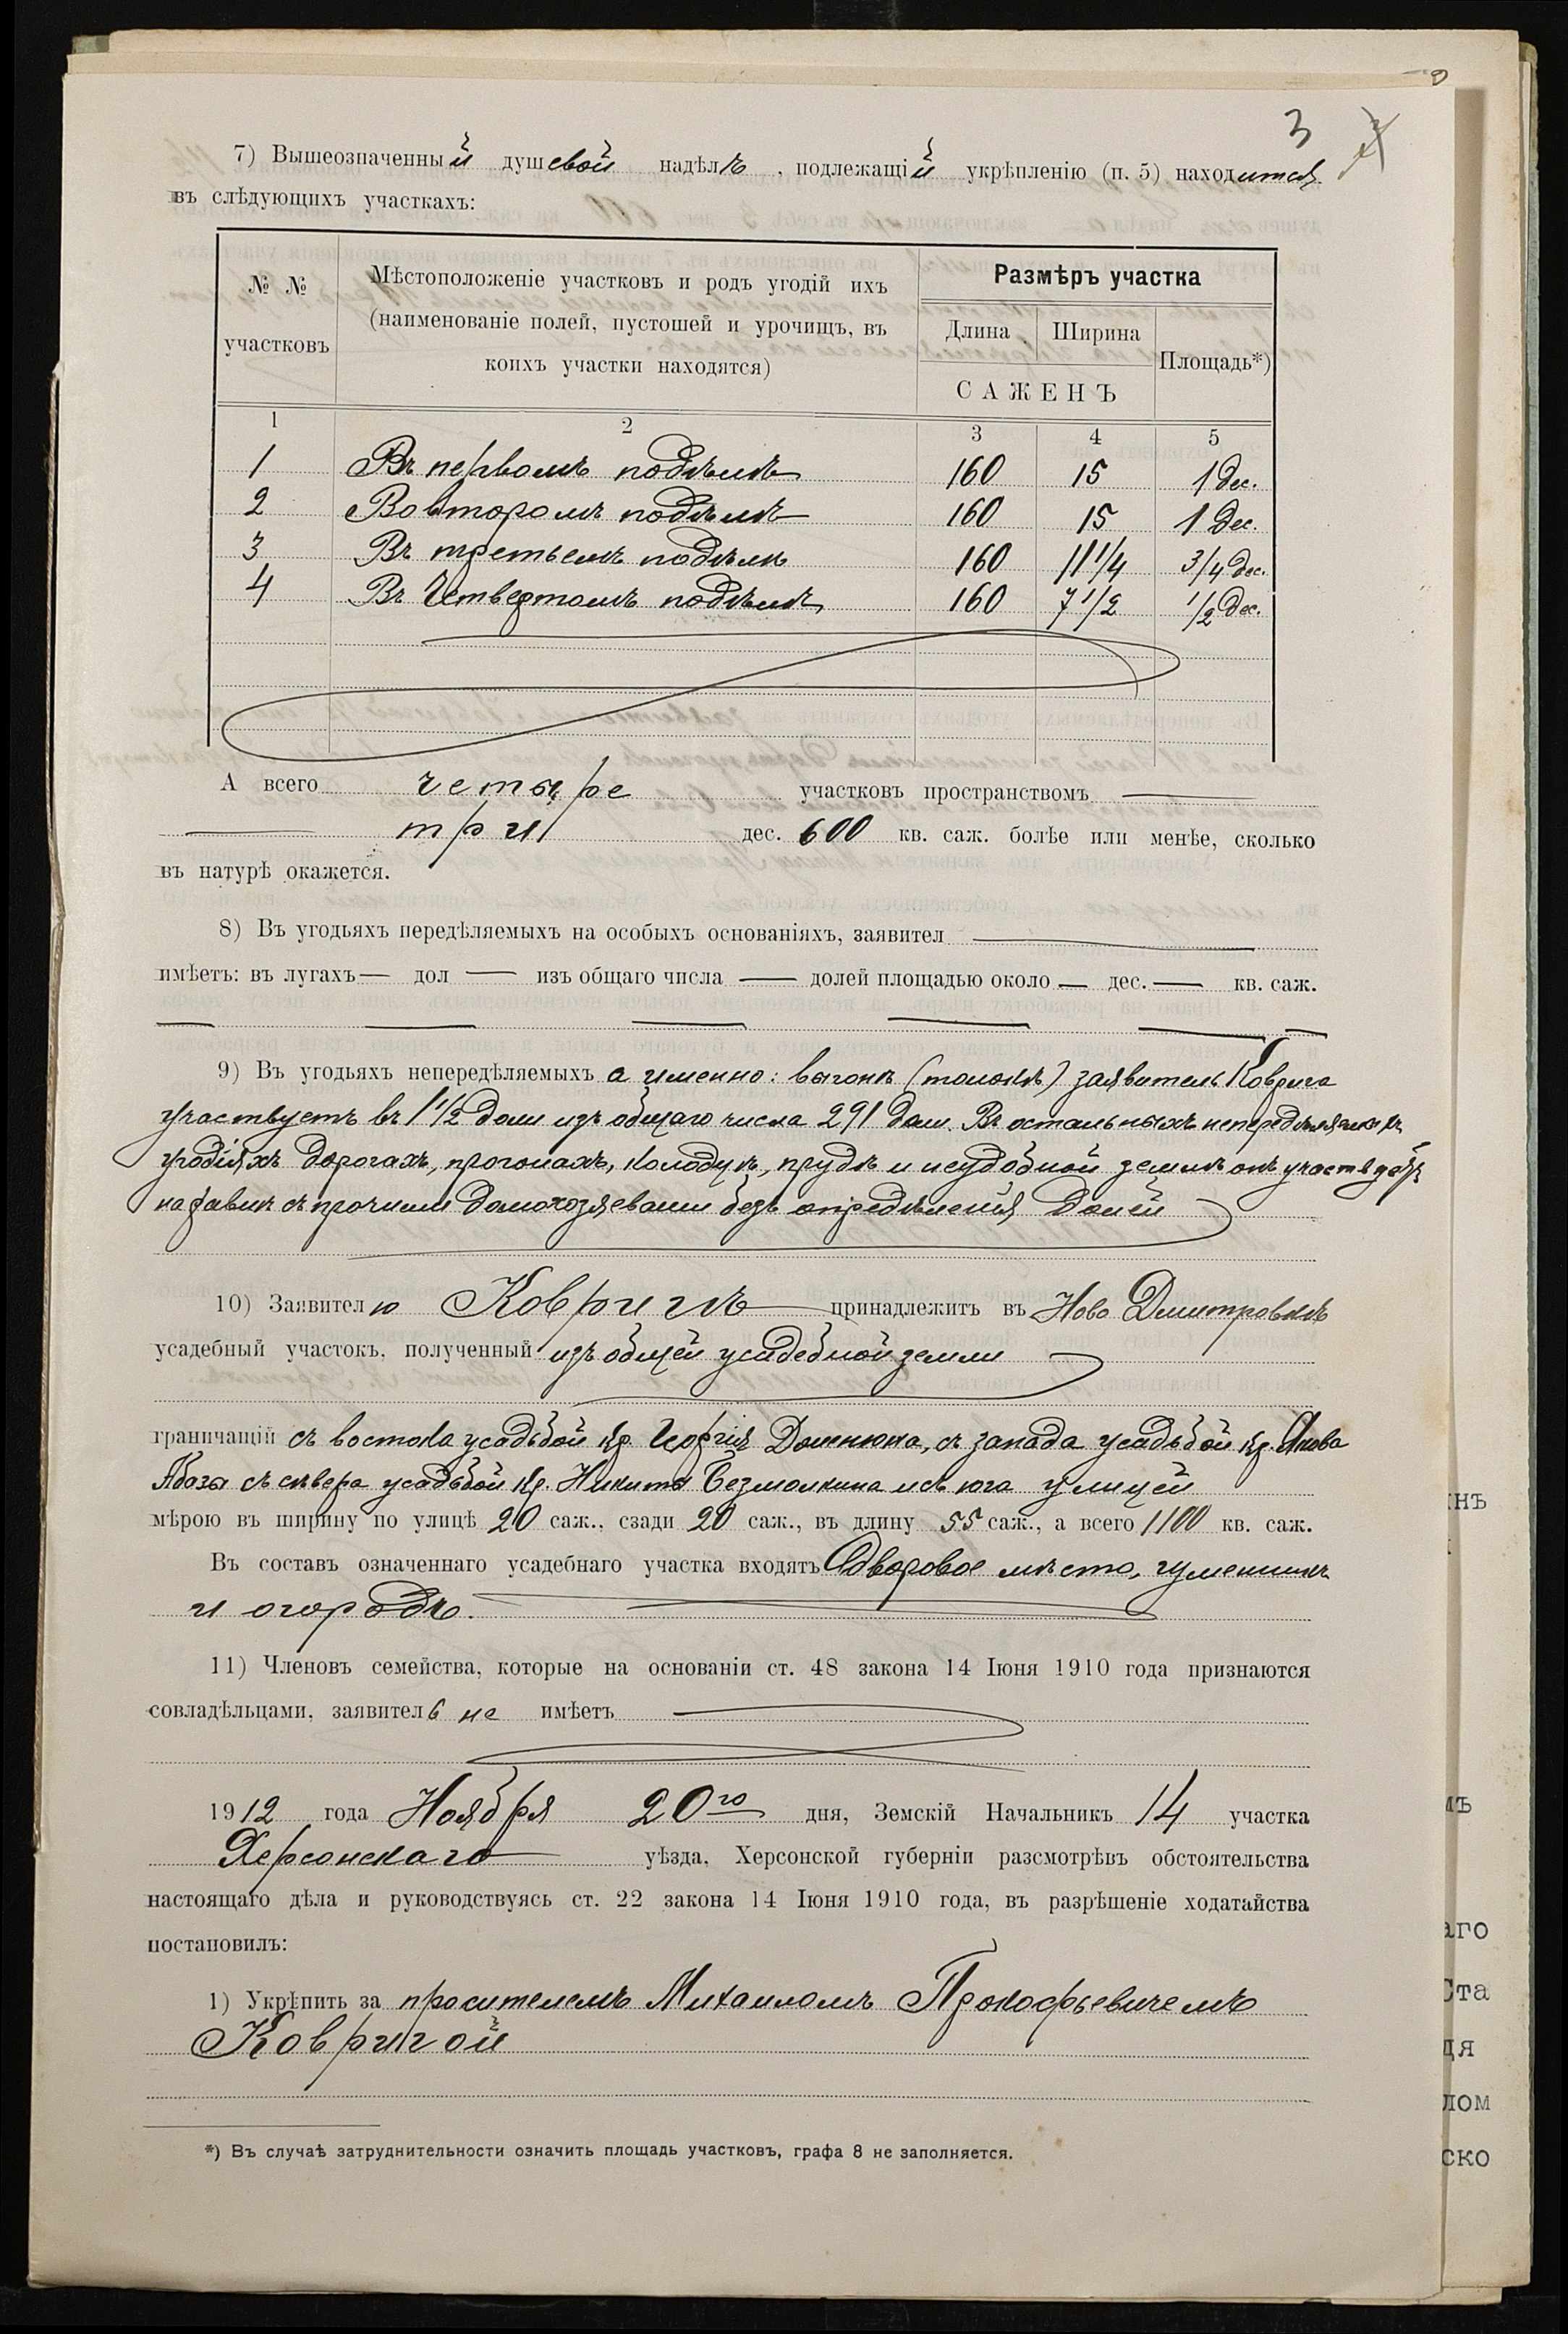 3
7) Вышеозначенный душевой надѣлъ, подлежащій укрѣпленію (п. 5) находится
въ слѣдующихъ участкахъ:
№ № участковъ | Мѣстоположеніе участковъ и родъ угодій ихъ (наименованіе полей, пустошей и урочищъ, въ коихъ участки находятся) | Размѣръ участка
Длина | Ширина | Площадь*)
САЖЕНЪ
1 | 2 | 3 | 4 | 5
1 | Въ первомъ подѣлѣ | 160 | 15 | 1 дес.
2 | Во второмъ подѣлѣ | 160 | 15 | 1 дес.
3 | Въ третьемъ подѣлѣ | 160 | 11 1/4 | 3/4 дес.
4 | Въ Четвертомъ подѣлѣ | 160 | 7 1/2 | 1/2 дес.
А всего четыре участковъ пространствомъ
три дес. 600 кв. саж. болѣе или менѣе, сколько
въ натурѣ окажется.
8) Въ угодьяхъ передѣляемыхъ на особыхъ основаніяхъ, заявител
имѣетъ: въ лугахъ — дол — изъ общаго числа — долей площадью около — дес. — кв. саж.
9) Въ угодьяхъ непередѣляемыхъ а именно: выгонѣ (толокѣ) заявитель Коврига
участвуетъ въ 1 1/2 доли изъ общаго числа 291 доли. Въ остальныхъ непередѣляемыхъ
угодіяхъ дорогахъ, прогонахъ, колодцѣ, прудѣ и неудобной землѣ онъ участвуетъ
на равнѣ съ прочими домохозяевами безъ опредѣленія долей
10) Заявителю Ковригѣ принадлежитъ въ Ново Дмитровкѣ
усадебный участокъ, полученный изъ общей усадебной земли
граничащій съ востока усадьбой кр. Георгія Доменюка, съ запада усадьбой кр. Якова
Абазы съ сѣвера усадьбой кр. Никиты Безмолкина и съ юга улицей
мѣрою въ ширину по улицѣ 20 саж., сзади 20 саж., въ длину 55 саж., а всего 1100 кв. саж.
Въ составъ означеннаго усадебнаго участка входятъ дворовое мѣсто, гуменникъ
и огородъ.
11) Членовъ семейства, которые на основаніи ст. 48 закона 14 Іюня 1910 года признаются
совладѣльцами, заявитель не имѣетъ
1912 года Ноября 20го дня, Земскій Начальникъ 14 участка
Херсонскаго уѣзда, Херсонской губерніи разсмотрѣвъ обстоятельства
настоящаго дѣла и руководствуясь ст. 22 закона 14 Іюня 1910 года, въ разрѣшеніе ходатайства
постановилъ:
1) Укрѣпить за просителемъ Михаиломъ Прокофьевичемъ
Ковригой
*) Въ случаѣ затруднительности означить площадь участковъ, графа 8 не заполняется.